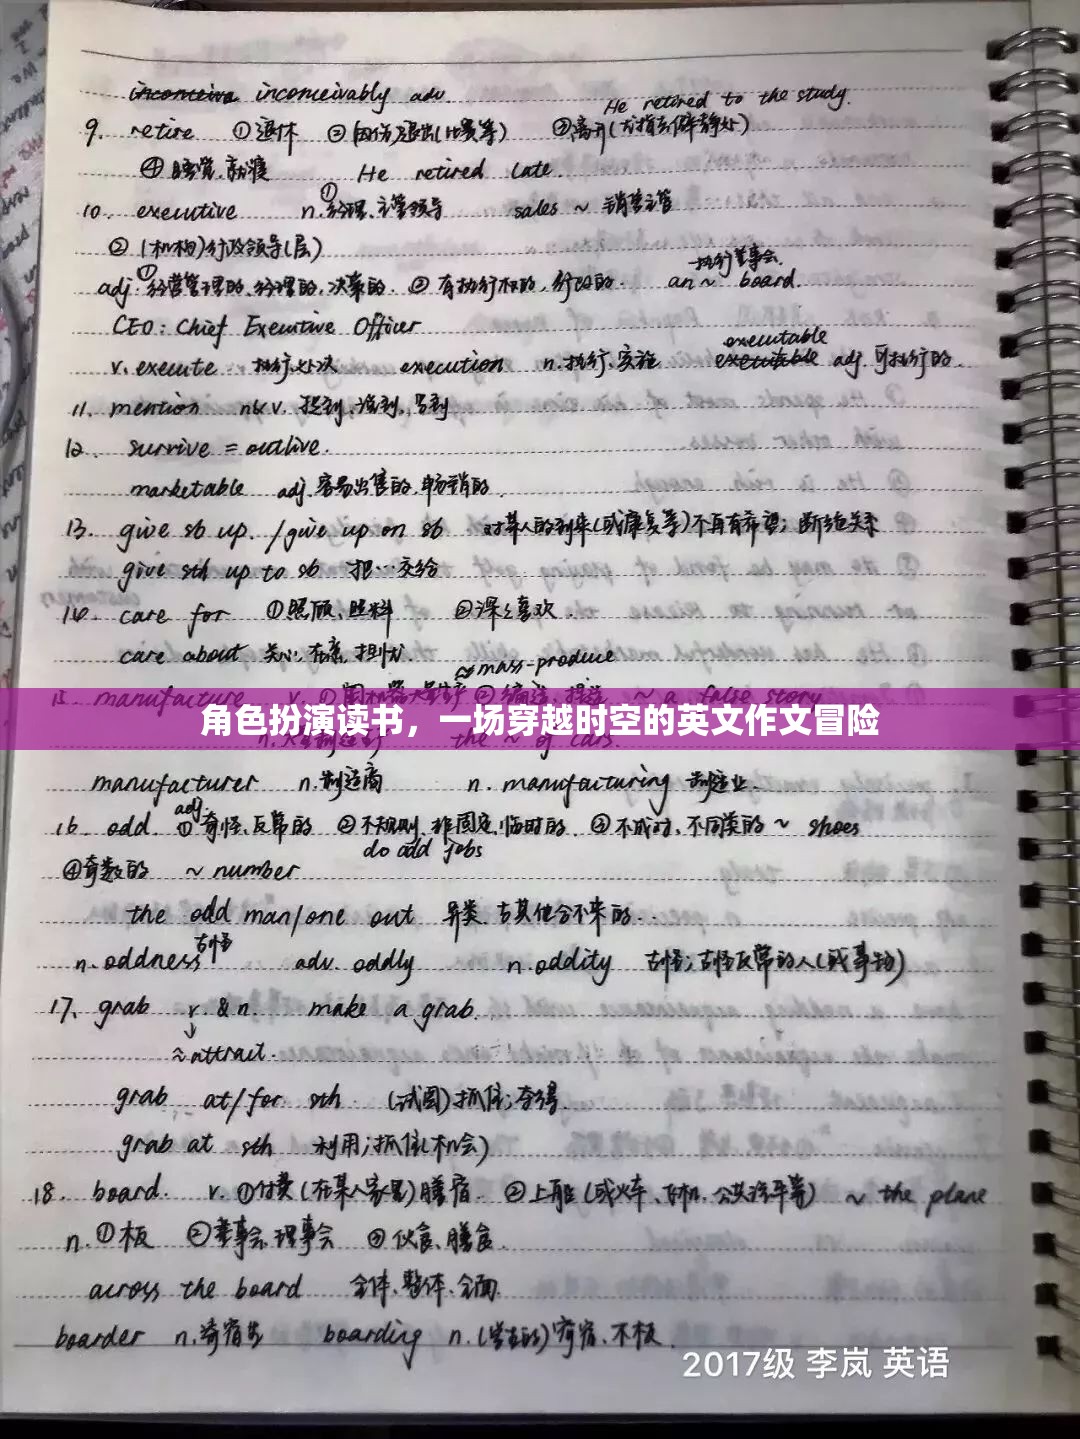 inconceiva inconceivably adv.
He retired to the study.
9. retire ①退休 ②因伤退出(比赛等) ③离开(尤指去僻静处)
④睡觉,就寝 He retired late.
10. executive n.①经理、主管领导 sales ~ 销售主管
②(机构)行政领导(层)
执行董事会
adj.①经营管理的、经理的,决策的. ②有执行权的,行政的. an ~ board.
CEO: Chief Executive Officer
executable
v. execute 执行,处决 execution n.执行、实施 adj.可执行的.
11. mention n&v. 提到,谈到,写到
12. survive = outlive.
marketable adj.容易出售的,畅销的.
13. give sb up. /give up on sb 对某人的到来(或康复等)不再有希望; 断绝关系
give sth up to sb 把…交给
14. care for ①照顾、照料 ②深深喜欢.
care about 关心,在意,担忧.
≈mass-produce
15. manufacture v. ~ a false story
角色扮演读书，一场穿越时空的英文作文冒险
the ~ of cars.
manufacturer n.制造商 n. manufacturing 制造业.
16. odd. adj. ①奇怪,反常的 ②不规则,非固定,临时的. ③不成对,不同类的 ~ shoes
do odd jobs
④奇数的 ~ number
the odd man/one out 异类,与其他合不来的...
n. oddness 古怪 adv. oddly n. oddity 古怪;古怪反常的人(或事物)
17. grab v. & n. make a grab.
≈attract.
grab at/for sth. (试图)抓住;夺得.
grab at sth 利用;抓住(机会)
18. board. v. ①付费(在某人家里)膳宿. ②上船(或火车、飞机、公共汽车等) ~ the plane
n.①板 ②董事会,理事会 ③伙食、膳食.
across the board 全体、整体、全面.
boarder n.寄宿生 boarding n. (学生的)寄宿、木板.
2017级 李岚 英语